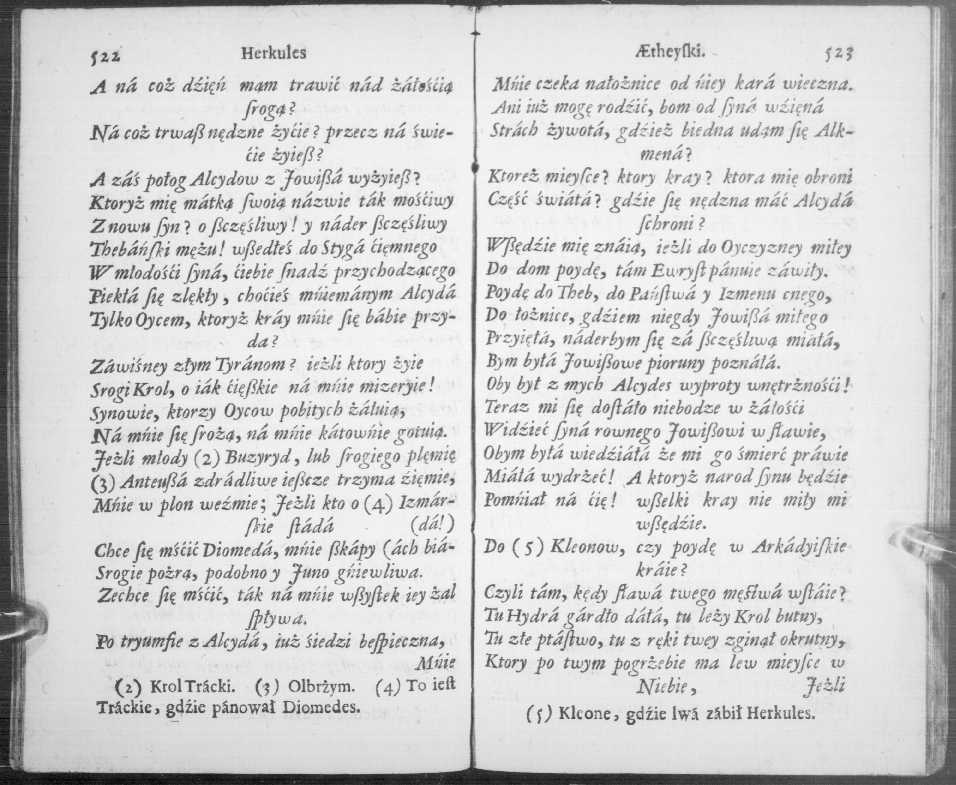 522 Herkules
A ná coż dźięń mam trawić nád żáłośćią
srogą?
Ná coż trwaß nędzne żyćie? przecz ná świe-
ćie żyieß?
A záś połog Alcydow z Jowißá wyżyieß?
Ktoryż mię mátką swoią názwie ták mośćiwy
Znowu syn? o sczęśliwy! y náder sczęśliwy
Thebáński mężu! wßedłeś do Stygá ćięmnego
W młodośći syná, ćiebie snadź przychodzącego
Piekłá się zlękły, choćieś mńiemánym Alcydá
Tylko Oycem, ktoryż kráy mńie się bábie przy-
da?
Záwiśney złym Tyránom? ieżli ktory żyie
Srogi Krol, o iák ćięßkie ná mńie mizeryie!
Synowie, ktorzy Oycow pobitych żáłuią,
Ná mńie się srożą, ná mńie kátownie gotuią.
Jeżli młody (2) Buzyryd, lub srogiego plęmię
(3) Anteußá zdrádliwe iescze trzyma źięmie,
Mńie w plon weźmie; Jeżli kto o (4) Izmár-
skie stádá (dá!)
Chce się mśćić Diomedá, mńie ßkápy (ách biá-
Srogie pożrą, podobno y Juno gńiewliwa.
Zechce się mśćić, ták ná mńie wßystek iey żal
spływa.
Po tryumfie z Alcydá, iuż śiedzi bespieczna,
Mńie
(2) Krol Trácki. (3) Olbrżym. (4) To iest
Tráckie, gdźie pánował Diomedes.
Ætheyski. 523
Mńie czeka nałożnice od ńiey kará wieczna.
Ani iuż mogę rodźić, bom od syná wźięná
Strách żywotá, gdźież biedna udam się Alk-
mená?
Ktoreż mieysce? ktory kray? ktora mię obroni
Część świátá? gdźie się nędzna máć Alcydá
schroni?
Wßędźie mię znáią, ieżli do Oyczyzney miłey
Do dom poydę, tám Euryst pánuie záwiły.
Poydę do Theb, do Państwá y Izmenu cnego,
Do łożnice, gdźiem niegdy Jowißá miłego
Przyięłá, náderbym się zá sczęśliwą miałá,
Bym byłá Jowißowe pioruny poználá.
Oby był z mych Alcydes wyproty wnętrżnośći!
Teraz mi się dostáło niebodze w żáłośći
Widźieć syná rownego Jowißowi w sławie,
Obym byłá wiedźiáłá że mi go śmierć práwie
Miáłá wydrżeć! A ktoryż narod synu będźie
Pomńiał ná ćię! wßelki kray nie miły mi
wßędźie.
Do (5) Kleonow, czy poydę w Arkádyiskie
kráie?
Czyli tám, kędy sławá twego męstwá wstáie?
Tu Hydrá gárdło dáłá, tu leży Krol butny,
Tu złe ptástwo, tu z ręki twey zginął okrutny,
Ktory po twym pogrżebie ma lew mieysce w
Niebie, Jeżli
(5) Kleone, gdźie lwá zábił Herkules.